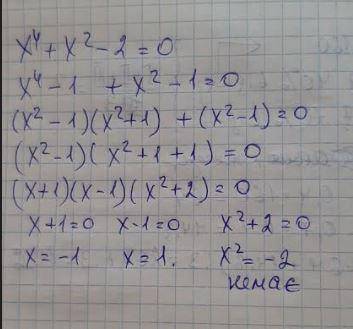 x⁴ + x² - 2 = 0
x⁴ - 1 + x² - 1 = 0
(x² - 1)(x² + 1) + (x² - 1) = 0
(x² - 1)(x² + 1 + 1) = 0
(x + 1)(x - 1)(x² + 2) = 0
x + 1 = 0 x - 1 = 0 x² + 2 = 0
x = -1 x = 1. x² = -2
немає